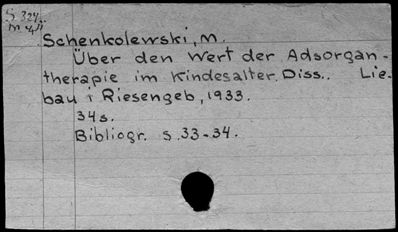 S 324
Schenkolewski, M.
Über den Wert der Adsorgan-
therapie im Kindesalter. Diss.. Lie-
bau i Riesengeb, 1933.
34s.
Bibliogr. S. 33-34.